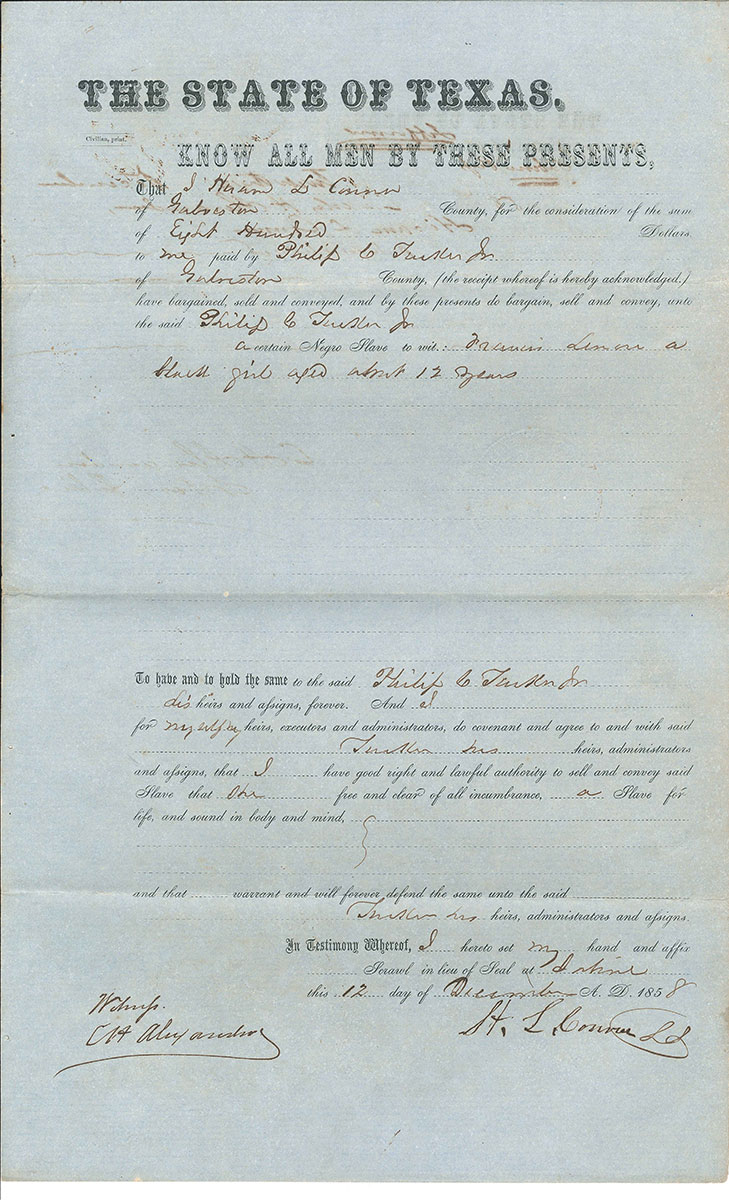 THE STATE OF TEXAS.
Civilian, print.
KNOW ALL MEN BY THESE PRESENTS,
That I Hiram L Conner
of Galveston County, for the consideration of the sum
of Eight Hundred Dollars
to me paid by Philip C Tucker Jr
of Galveston County, (the receipt whereof is hereby acknowledged.)
have bargained, sold and conveyed, and by these presents do bargain, sell and convey, unto
the said Philip C Tucker Jr
a certain Negro Slave to wit: a
black girl aged about 12 years
To have and to hold the same to the said Philip C Tucker Jr
his heirs and assigns, forever. And I
for myself my heirs, executors and administrators, do covenant and agree to and with said
Tucker his heirs, administrators
and assigns, that I have good right and lawful authority to sell and convey said
Slave that free and clear of all incumbrance, a Slave for
life, and sound in body and mind,
and that warrant and will forever defend the same unto the said
Tucker his heirs, administrators and assigns.
In Testimony Whereof, I hereto set my hand and affix
Scrawl in lieu of Seal at
this 12 day of December A. D. 1858
Witness.
H. L. Conner
Alexander